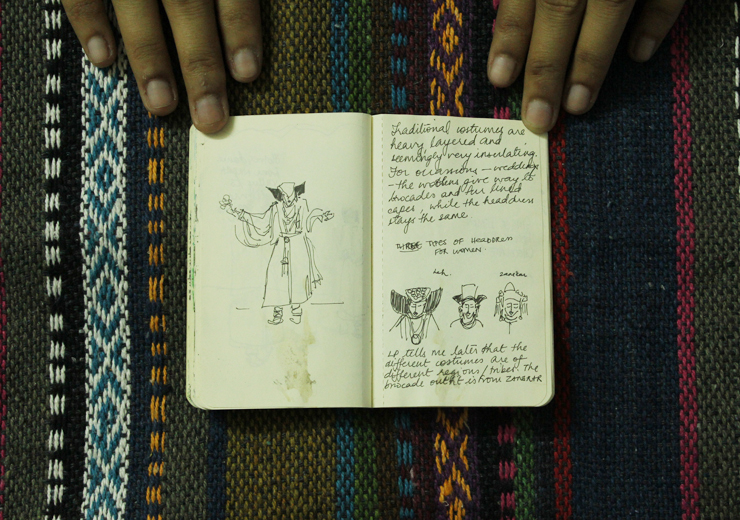 Traditional costumes are
heavy layered and
seemingly very insulating.
For occasions – weddings
– the wollens give way to
brocades and fur lined
capes, while the headdress
stays the same
THREE TYPES OF HEADDRESS
FOR WOMEN.
Leh. Zanskar
LP tells me later that the
different costumes are of
different regions / tribes. The
brocade outfit is from ZANSKAR